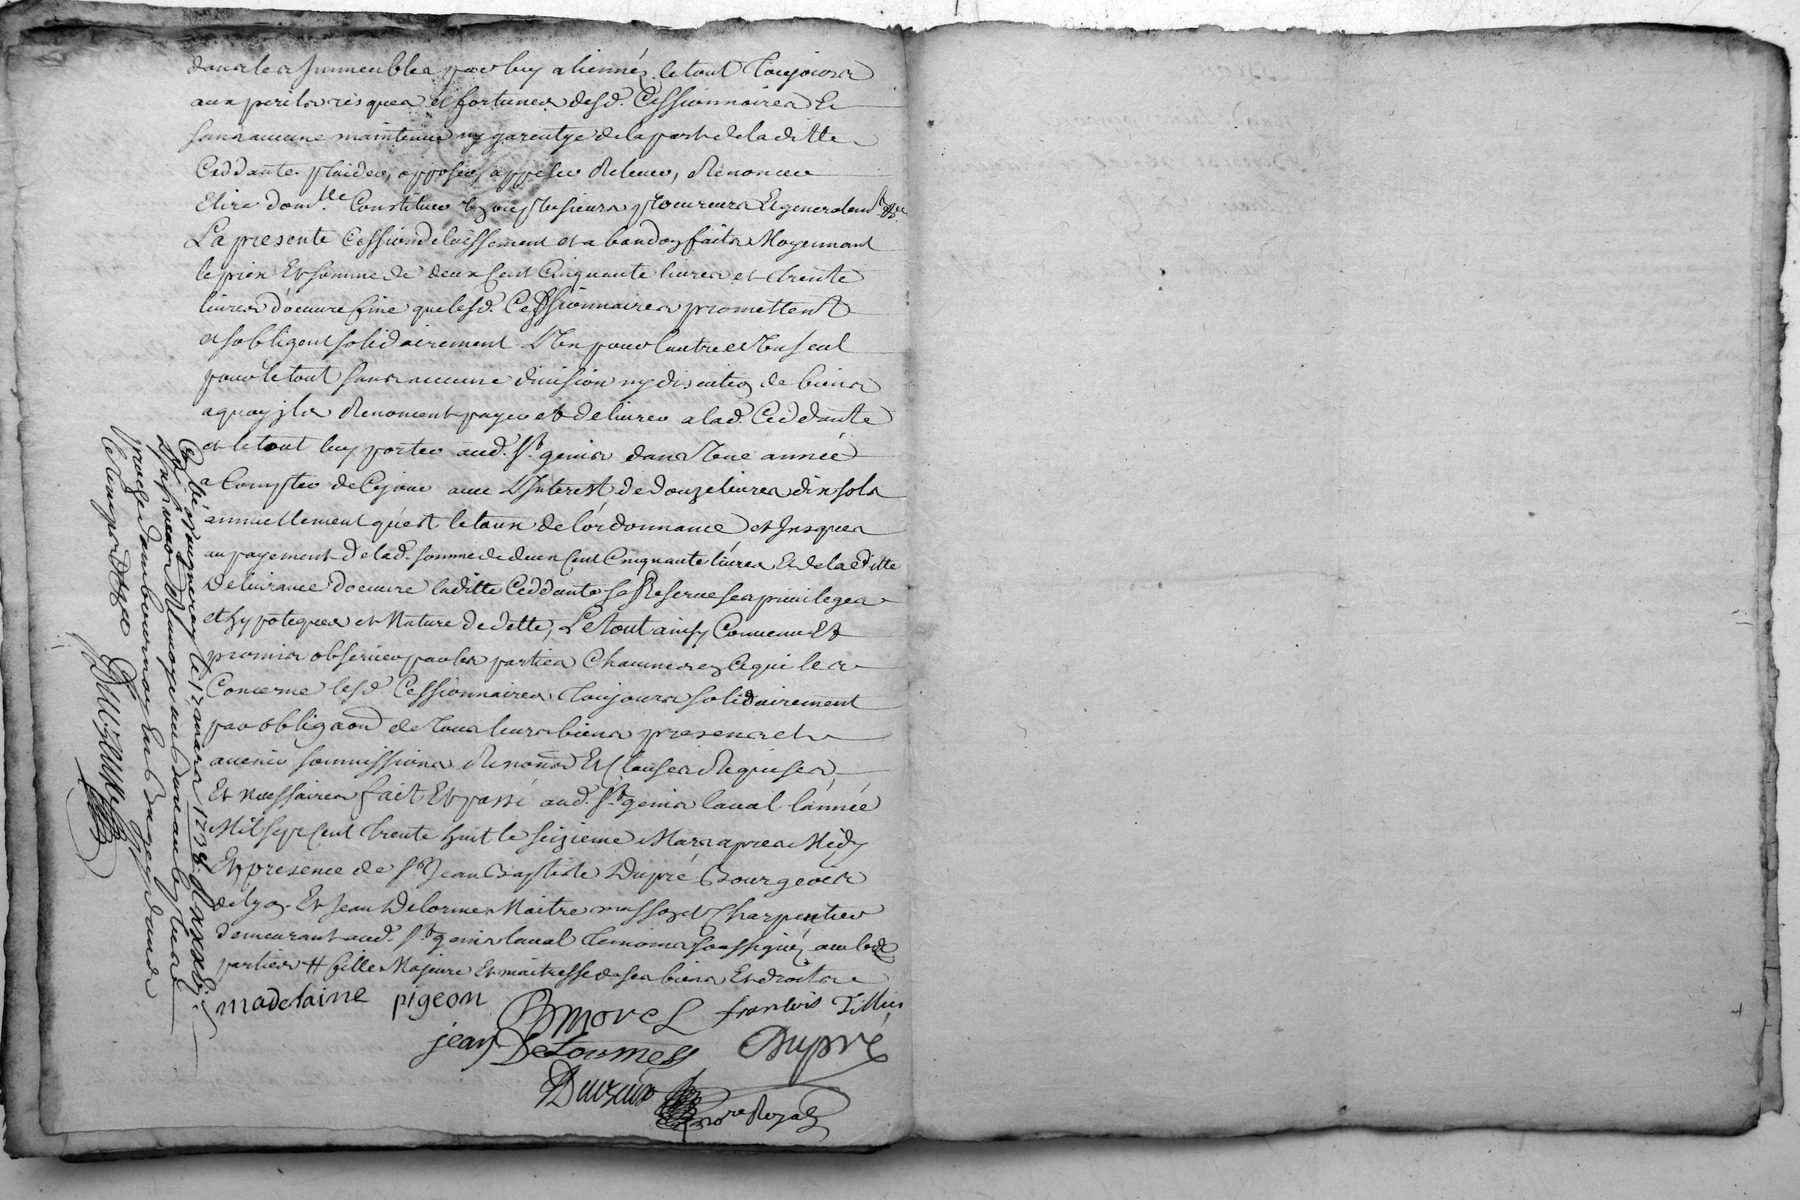 dans les Immeubles par luy alienné, le tout Toujours
aux perils risques et fortunes desd. Cessionnaires Et
sans aucune maintenue ny garentye de la part de laditte
Ceddante. plaider, opposer, appeler Relever, Renoncer
Elire dom.lle Constituer plusieurs procureurs Et generalem.t &c.
La presente Cession delaissement et abandon faits Moyennant
le prix Et somme de deux Cent Cinquante livres et trente
livres d'oeuvre fine que lesd. Cessionnaires promettent
et sobligent solidairement L'Un pour l'autre et Un seul
pour le tout sans aucune division ny discution de biens
a quoy ils Renoncent payer et delivrer a lad. Ceddante
et le tout luy porter aud. St. genis dans Une année
a Compter de Ce jour avec L'Interest de douze livres dix sols
annuellement qu'est le taux de lordonnance, et Jusques
au payement de lad. somme de deux Cent Cinquante livres Et de laditte
Delivrance doeuvre laditte Ceddante se Reserve ses privileges
et hypoteques et Nature de dette, Le tout ainsy Convenu Et
promis observer par les parties Chacune en Ce qui les
Concerne lesd. Cessionnaires Toujours solidairement
par obligaon de Tous leurs biens presens et
avenir soumissions Renons Et Clauses Requises
Et necessaires fait Et passé aud. St. genis laval l'année
Mil sept Cent trente huit le seizieme Mars apres Midy
En presence de Sr. Jean Baptiste Dupré Bourgeois
de Lyon. Et Jean Delorme Maitre masson & Charpentier
demeurant aud. St. genis laval Temoins soussignéz avec lesd.
parties # fille Majeure Et maitresse de ses biens Et droits
madelaine pigeon
Morel francois Tillier
jean Delorme Dupré
nore Royal
le 17 mars 1738